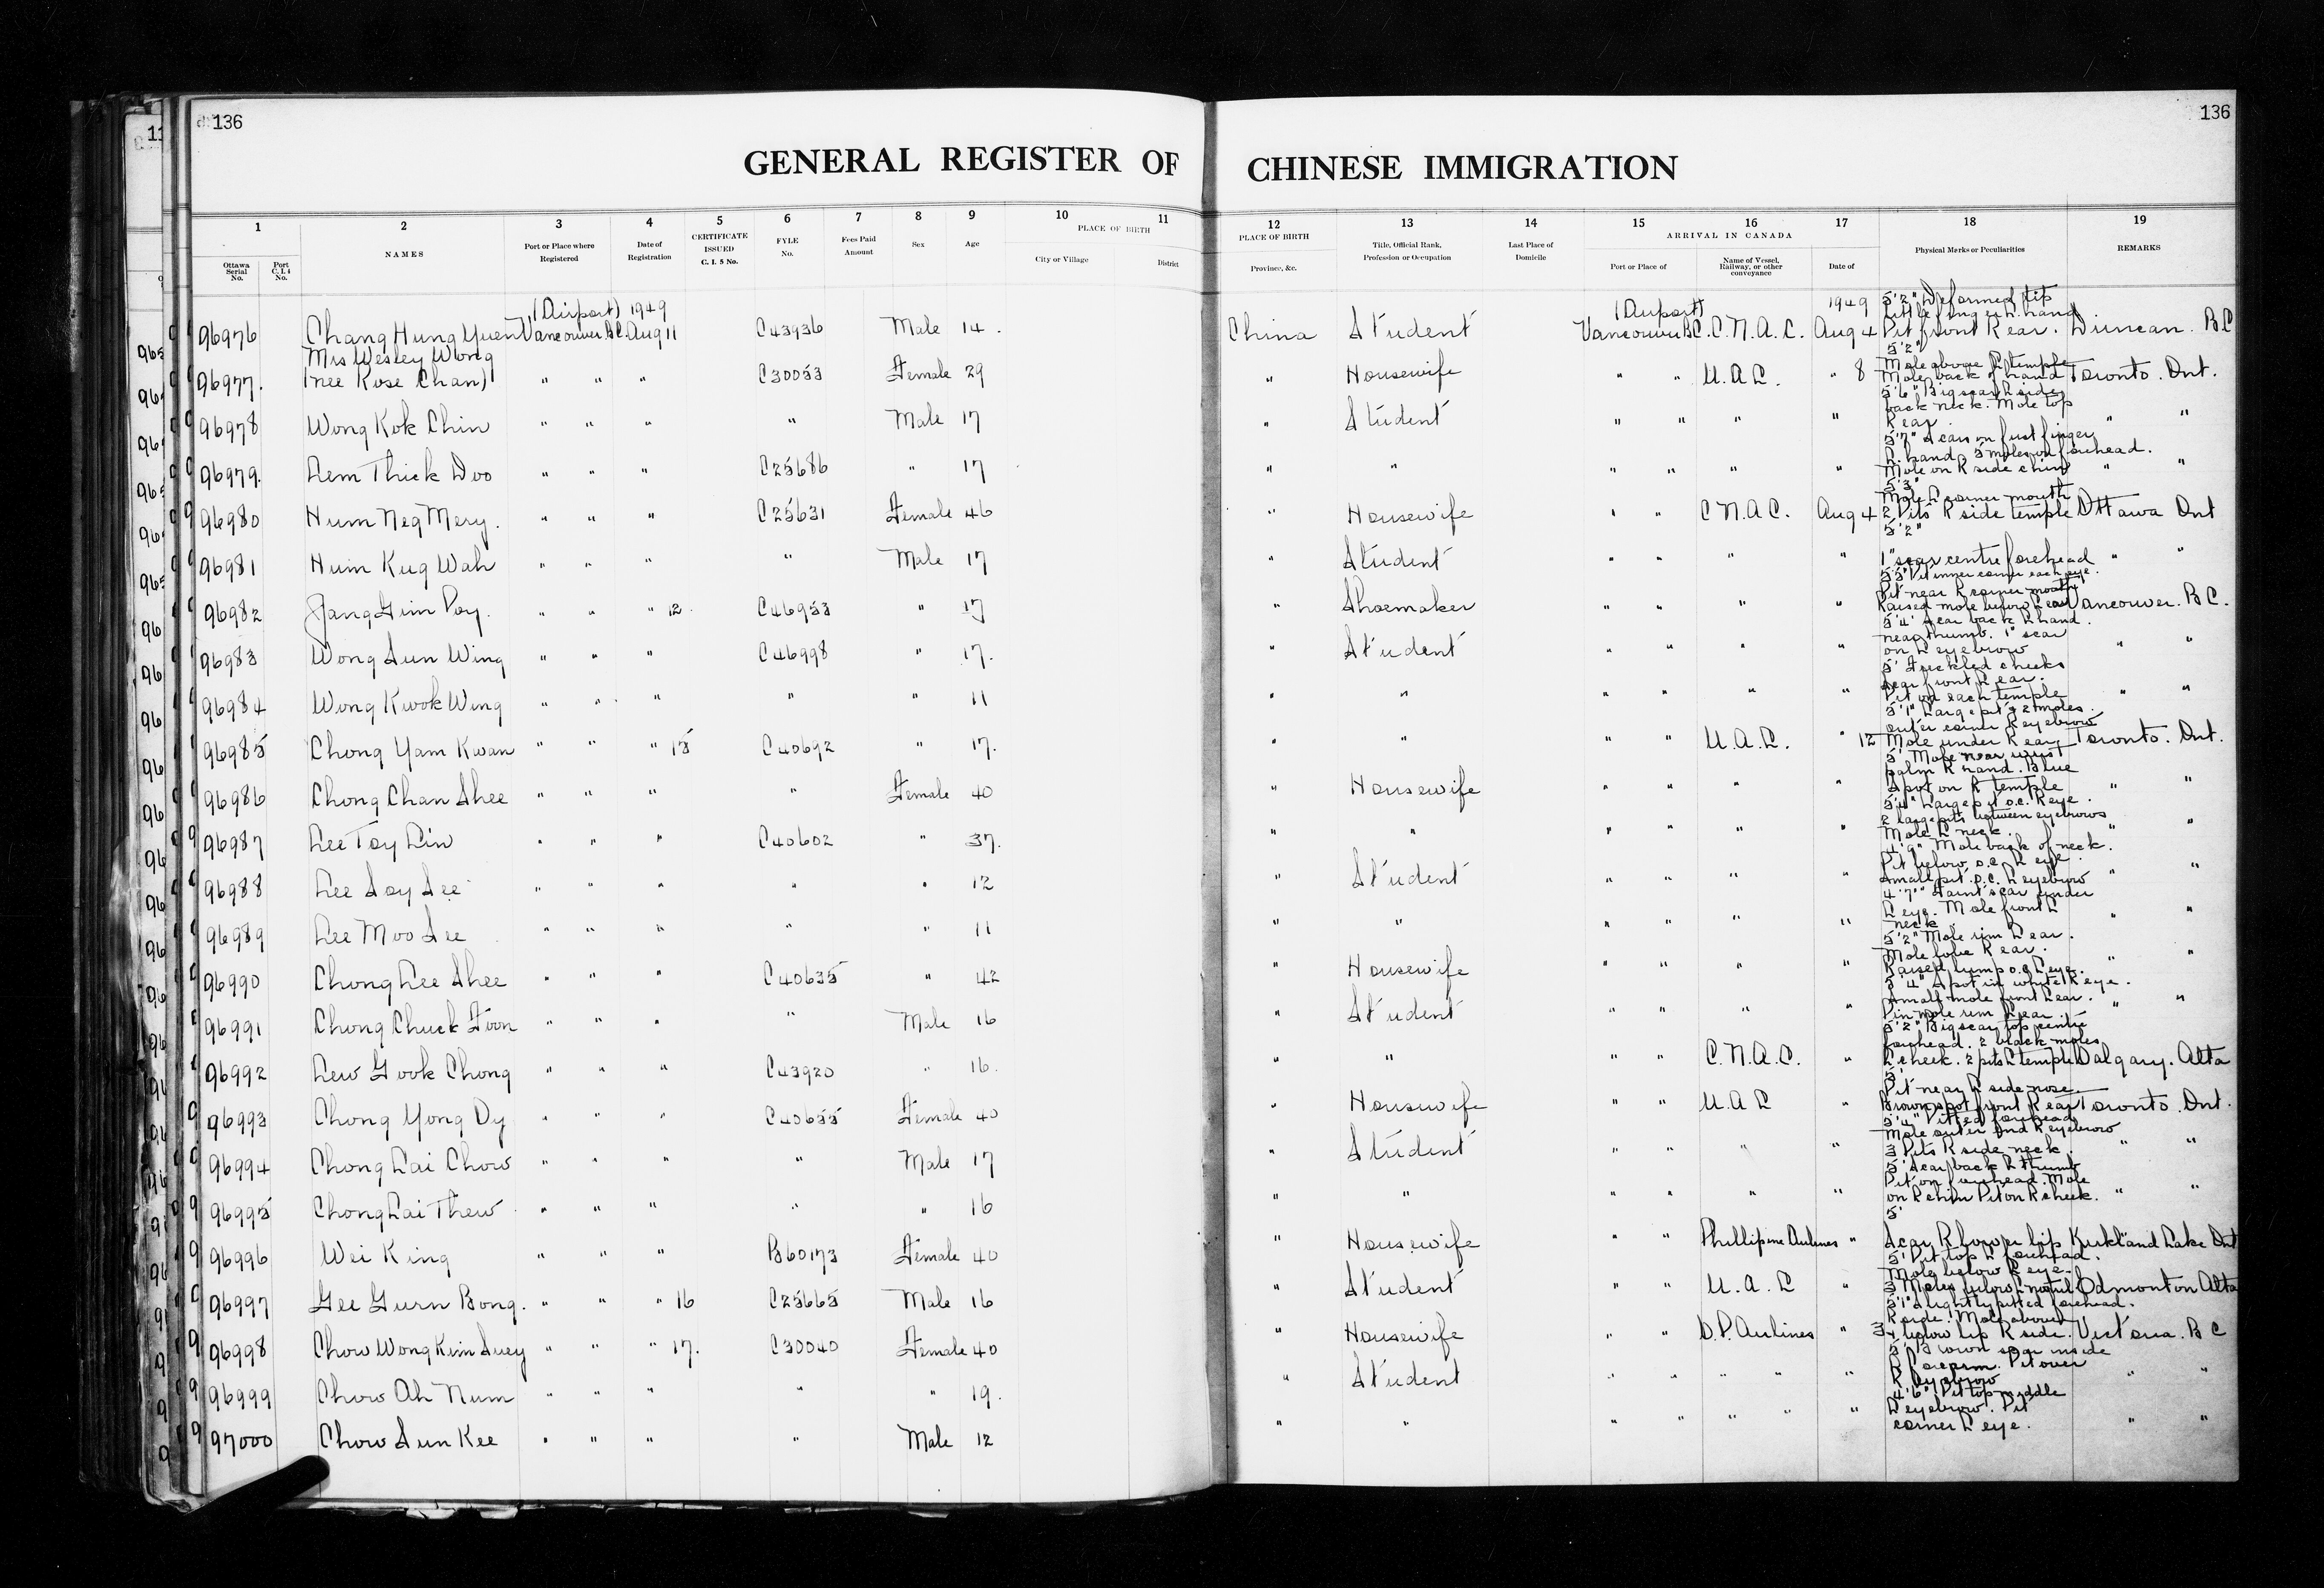 136
136
GENERAL REGISTER OF CHINESE IMMIGRATION
1 2 3 4 5 6 7 8 9 10 11 12 13 14 15 16 17 18 19
Ottawa Serial No. Port C.I.4 No. NAMES Port or Place where Registered Date of Registration CERTIFICATE ISSUED C. I. 5 No. FYLE No. Fees Paid Amount Sex Age PLACE OF BIRTH City or Village District
PLACE OF BIRTH Province, &c. Title, Official Rank, Profession or Occupation Last Place of Domicile ARRIVAL IN CANADA Port or Place of Name of Vessel, Railway, or other conveyance Date of Physical Marks or Peculiarities REMARKS
(Airport) 1949 (Airport) 1949 5'2" Deformed tip
little finger L. hand
96976 Chang Hung Yuen Vancouver B.C. Aug 11 C43936 Male 14. China Student Vancouver B.C. C.N.A.C. Aug 4 Pit front R ear. Duncan. B.C
Mrs Wesley Wong 5'2"
Mole above L temple
96977. (nee Rose Chan) " " " C30053 Female 29 " Housewife " " U.A.L. " 8 Mole back of hand Toronto. Ont.
5'6" Big scar L side
back neck. Mole top
96978 Wong Kok Chin " " " " Male 17 " Student " " " " R ear. " "
5'7" Scars on first finger
L. hand, 3 moles on forehead.
96979. Lem Thick Doo " " " C25686 " 17 " " " " " " Mole on R side chin " "
5'3"
Mole L corner mouth
96980 Hum Neg Mery. " " " C25631 Female 46 " Housewife " " C.N.A.C. Aug 4 2 Pits R side temple Ottawa Ont
5'2"
96981 Hum Kug Wah " " " " Male 17 " Student " " " " 1" scar centre forehead " "
5'5" Pit inner corner each eye.
Pit near R corner mouth
96982 Jang Gim Poy. " " " 12. C46953 " 17 " Shoemaker " " " " Raised mole below L ear Vancouver. B.C.
5'4" Scar back L hand.
near thumb. 1" scar
96983 Wong Sun Wing " " " C46998 " 17. " Student " " " " on L eyebrow " "
5' Freckled cheeks
Scar front L ear.
96984 Wong Kwok Wing " " " " " 11 " " " " " " Pit on each temple " "
5'1" Large pit & 2 moles.
outer corner R eyebrow
96985 Chong Yam Kwan " " " 15 C40692 " 17. " " " " U.A.L. " 12 Mole under R ear Toronto. Ont.
5' Mole near wrist
palm R hand. Blue
96986 Chong Chan Shee " " " " Female 40 " Housewife " " " " Spot on R temple " "
5'4" Large pit o.c. R eye.
2 large pits between eyebrows
96987 Lee Toy Lin " " " C40602 " 37. " " " " " " Mole L neck. " "
4'9" Mole back of neck.
Pit below o.c. L eye.
96988 Lee Soy See " " " " " 12 " Student " " " " Small pit o.c. L eyebrow " "
4'7" Faint scar under
L eye. Mole front L
96989 Lee Moo See " " " " " 11 " " " " " " neck. " "
5'2" Mole rim L ear.
Mole lobe R ear.
96990 Chong Lee Shee " " " C40635 " 42 " Housewife " " " " Raised lump o.c. L eye. " "
5'4" Spot in white R eye.
Small mole front L ear.
96991 Chong Chuck Foon " " " " Male 16 " Student " " " " Pin mole rim L ear " "
5'2" Big scar top centre
forehead. 2 black moles
96992 Lew Gook Chong " " " C43920 " 16. " " " " C.N.A.C. " L cheek. 2 pits L temple Calgary. Alta
5'
Pit near L side nose.
96993 Chong Yong Oy " " " C40655 Female 40 " Housewife " " U.A.L " Brown spot front R ear Toronto. Ont.
5'4" Pitted forehead
Mole outer end R eyebrow
96994 Chong Lai Chow " " " " Male 17 " Student " " " " 3 Pits R side neck. " "
5' Scar back L thumb
Pit on forehead. Mole
96995 Chong Lai Thew " " " " " 16 " " " " " " on R chin Pit on R cheek. " "
5'
96996 Wei King " " " B60173 Female 40 " Housewife " " Phillipine Airlines " Scar R lower lip Kirkland Lake Ont
5' Pit top L forehead.
Mole below R eye.
96997 Gee Gurn Bong. " " " 16 C25665 Male 16 " Student " " U.A.L " 3 Moles below L nostril Edmonton Alta
5'1" Slightly pitted forehead.
R side. Mole above
96998 Chow Wong Kim Suey " " " 17. C30040 Female 40 " Housewife " " C.P. Airlines " 3 & below lip R side. Victoria. B C
5' Brown spot inside
R forearm. Pit over
96999 Chow Ah Num " " " " " 19. " Student " " " " " R eyebrow " "
4'6" Pit top middle
L eyebrow. Pit
97000 Chow Sun Kee " " " " Male 12 " " " " " " " corner L eye. " "